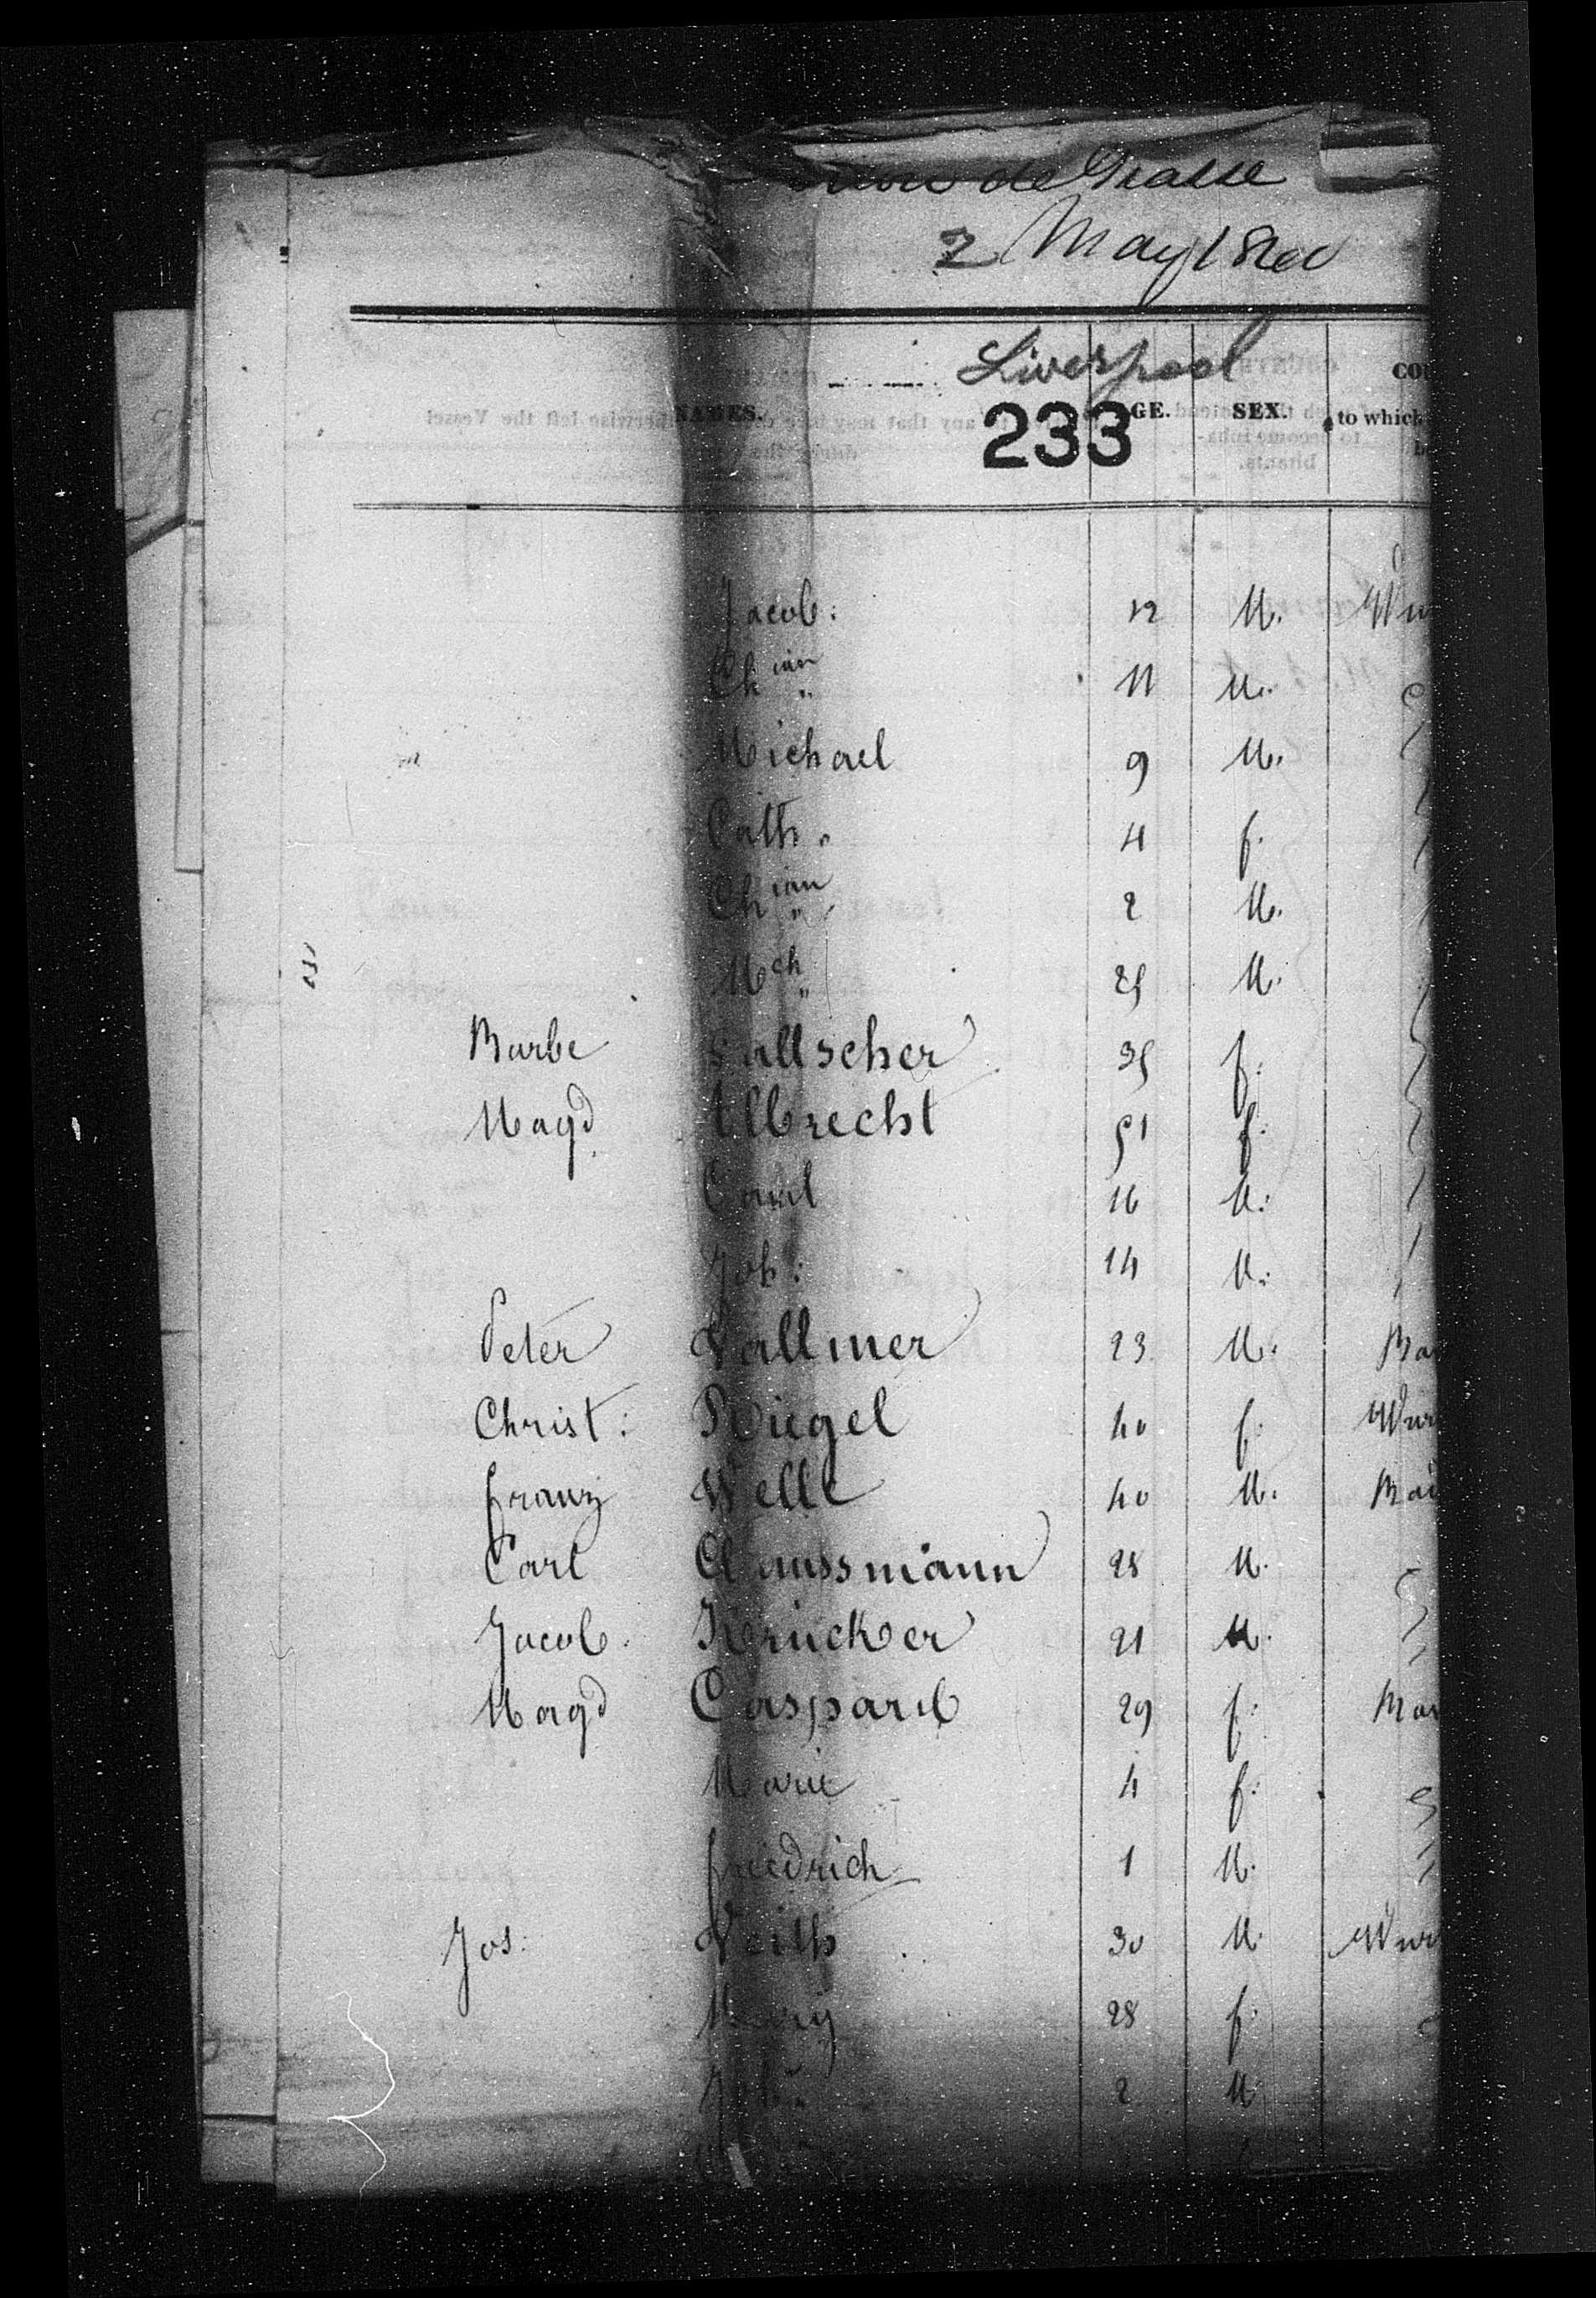 de Grasse
2 May 1860
Liverpool
233
NAMES. AGE. SEX. to which
Jacob: 12 M. Wur
Ch ian 11 M.
Michael 9 M.
Cath. 4 f.
Ch ian 2 M.
M ch 25 M.
Barbe allscher 35 f.
Magd Albrecht 51 f.
Carl 16 M.
Joh: 14 M.
Peter Vallmer 23 M. Ba
Christ: Riegel 40 f. Wur
franz Welle 40 M. Bai
Carl aussmann 28 M.
Jacob Krücker 21 M.
Magd Caspard 29 f. Bai
Marie 4 f.
friedrich 1 M.
Jos: Veith 30 M. Wur
Mary 28 f.
2 M.